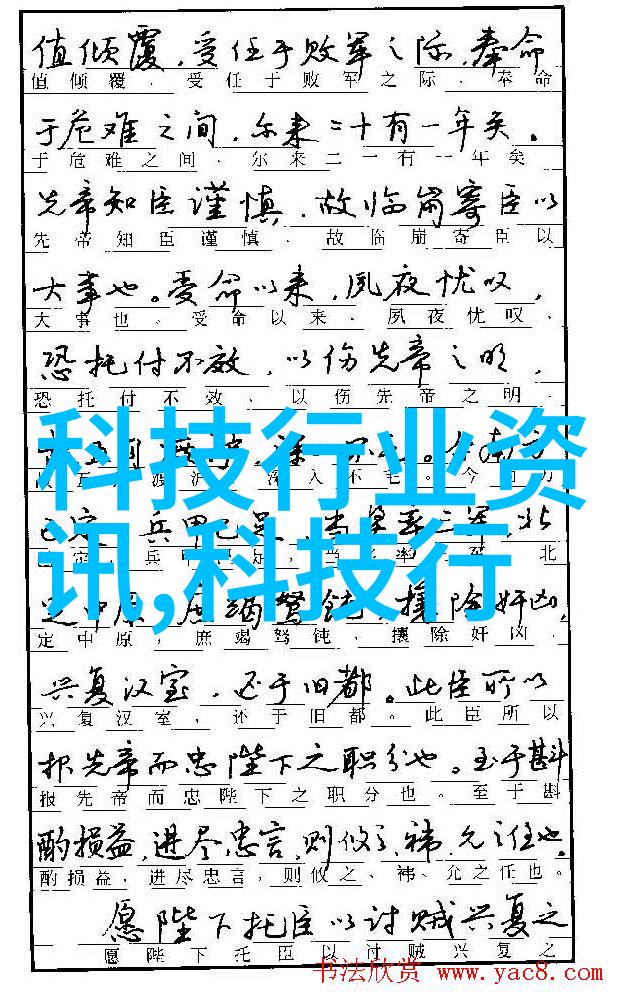 值倾覆，受任于败军之际，奉命
值倾覆．受任于败军之际．奉命
于危难之间，尔来二十有一年矣。
于危难之间．尔来二一有一年矣
先帝知臣谨慎，故临崩寄臣以
先帝知臣谨慎．故临崩寄臣以
大事也。受命以来，夙夜忧叹，
大事也。受命以来．夙夜忧叹．
恐托付不效，以伤先帝之明，
恐托付不效．以伤先帝之明．
科技行业资
讯,科技行
深入不毛。今
兵甲已足，
北
定中原，庶竭驽钝，攘除奸凶，
定中原，庶竭驽钝，攘除奸凶，
兴复汉室，还于旧都。此臣所以
兴复汉室，还于旧都。此臣所以
报先帝而忠陛下之职分也。至于斟
报先帝而忠陛下之职分也。至于斟
酌损益，进尽忠言，则攸之、祎、允之任也。
酌损益．进尽忠言，则攸之、祎、允之任也。
愿陛下托臣以讨贼兴复之
愿陛下托臣以讨贼兴复之
书法欣赏 www.yac8.com